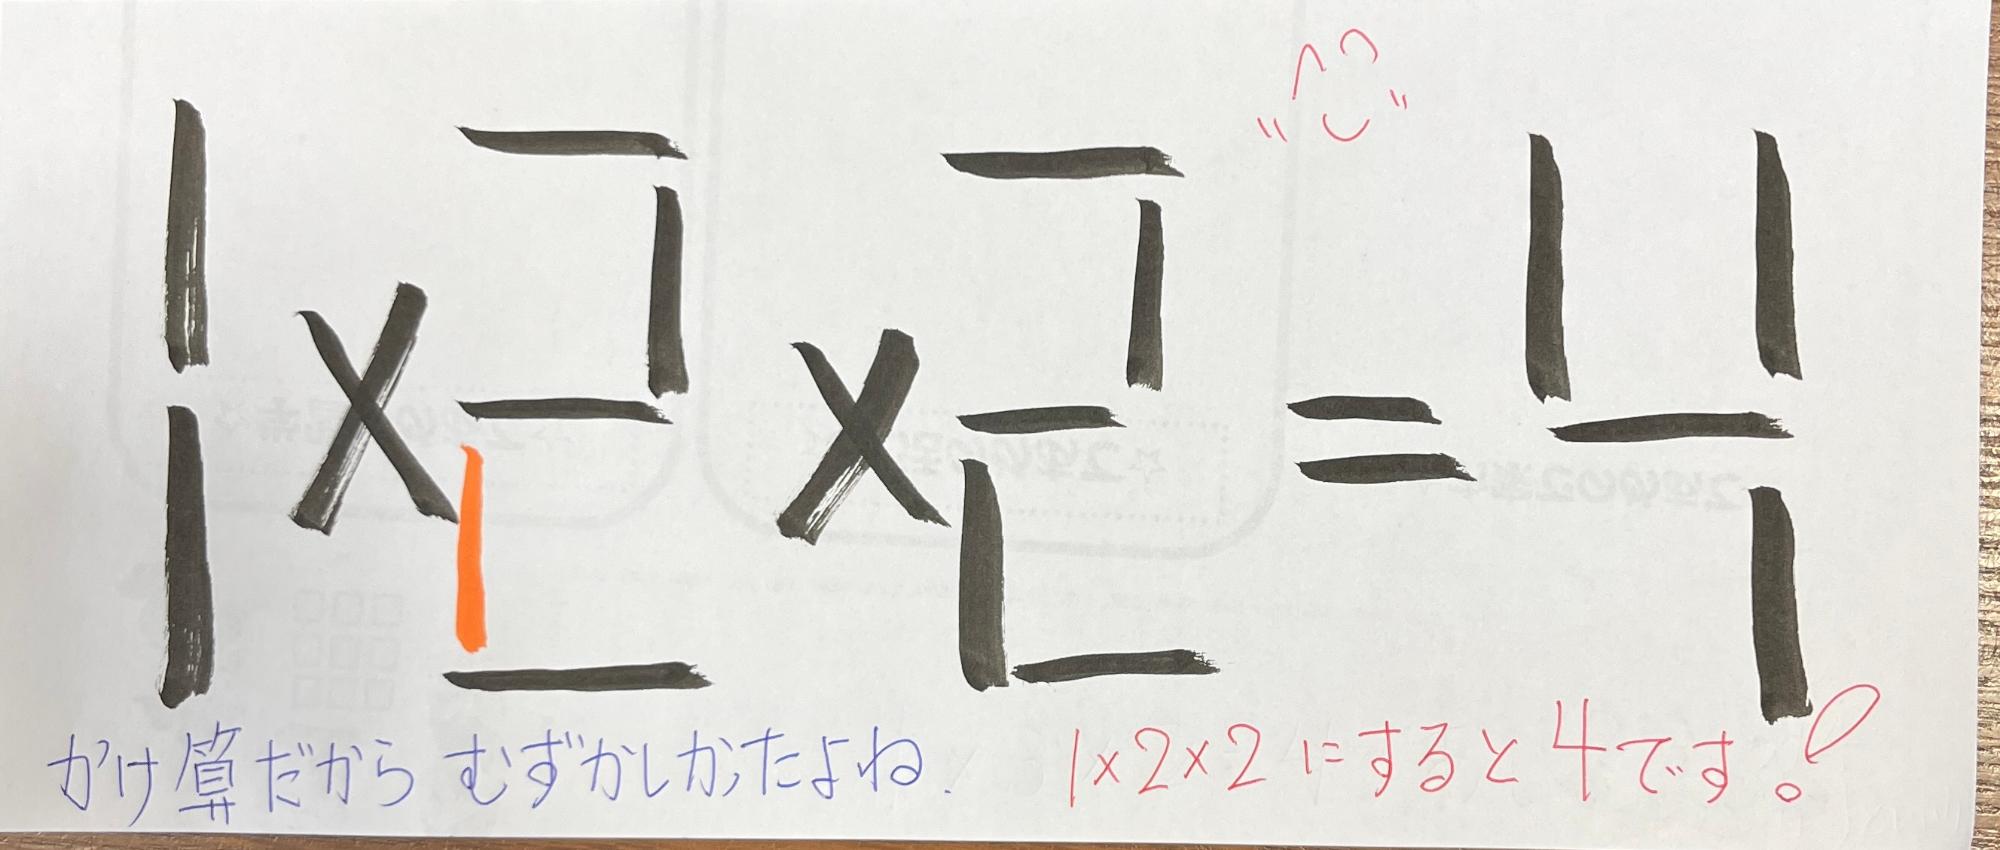 1×2×2=4
かけ算だから むずかしかったよね. 1×2×2にすると4です!